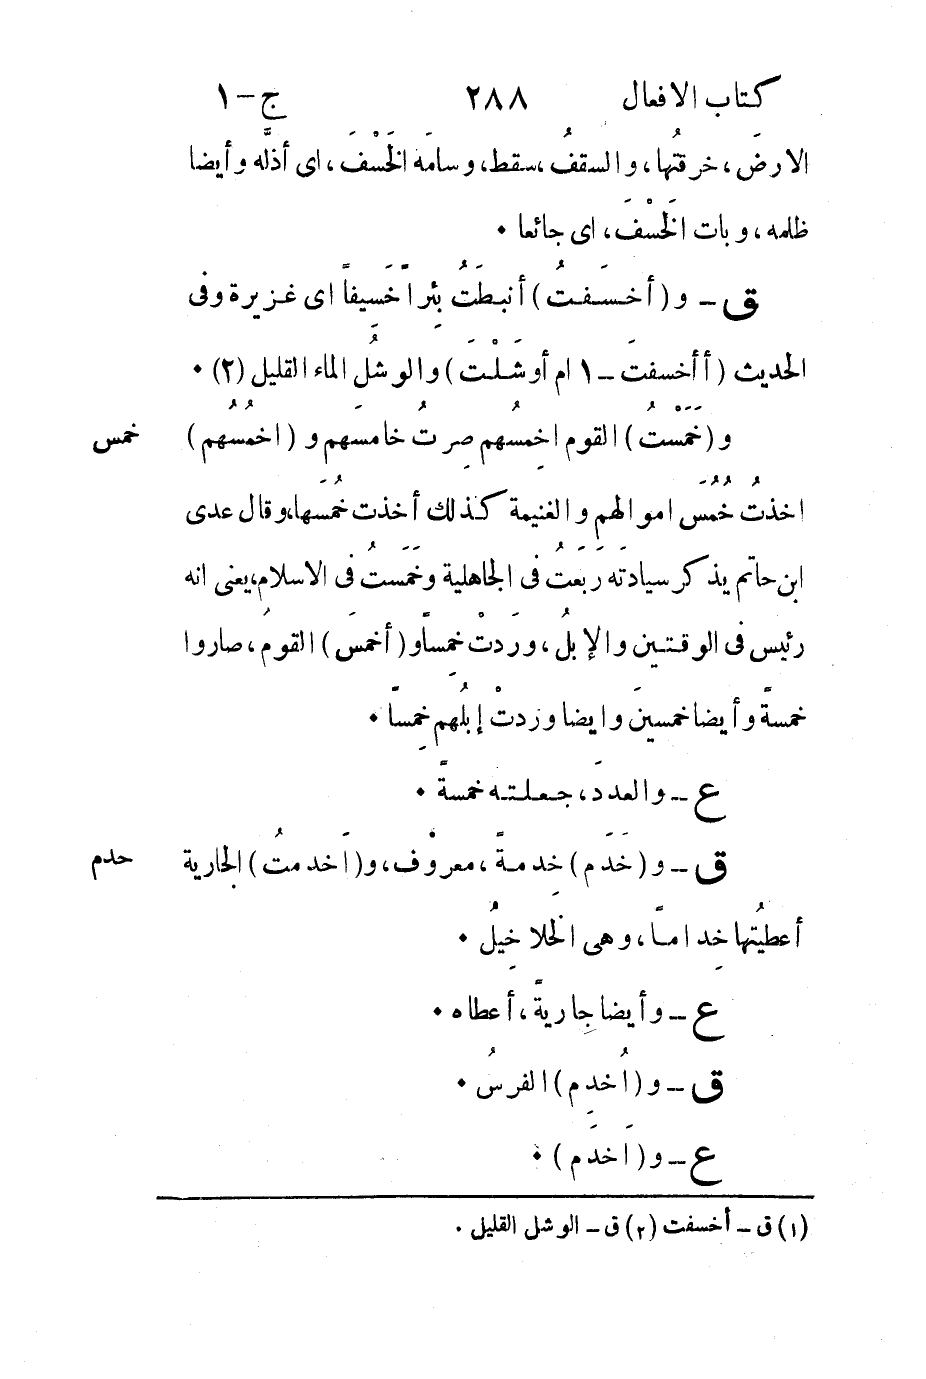 كتاب الافعال ٢٨٨ ج-١
الارضَ، خرقتُها، والسقفُ، سقط، وسامَه الخَسْفَ، اى أذلَّه وأيضا
ظلمه، وبات الخَسْفَ، اى جائعا •
ق - و (أخسَفتُ) أنبطَتُ بِئراً خَسيفاً اى غزيرة وفى
الحديث (أأخسفتَ - ١ ام أوشَلْتَ) والوشَلُ الماء القليل (٢) •
و (خَمَسْتُ) القوم اخمِسُهم صِرتُ خامسَهم و (اخمُسُهم) خمس
اخذتُ خُمُسَ اموالهم والغنيمة كذلك أخذت خُمسَها، وقال عدى
ابن حاتم يذكر سيادته رَبَعَتُ فى الجاهلية وخَمَستُ فى الاسلام، يعنى انه
رئيس فى الوقتين والإبلُ، ورَدتْ خِمساً و (أخمَسَ) القومُ، صاروا
خمسةً وأيضا خمسينَ وايضا وردتْ إبلُهم خِمساً •
ع - والعددَ، جعلته خمسةً •
ق - و (خَدَم) خِدمةً، معروْف، و (اَخدمتُ) الجارية خدم
أعطيتُها خِداماً، وهى الخلاخِيلُ •
ع - وأيضا جاريةً، أعطاه •
ق - و (اُخدِم) الفرسُ •
ع - و (اَخدَم) •
(١) ق - أخسفت (٢) ق - الوشل القليل •